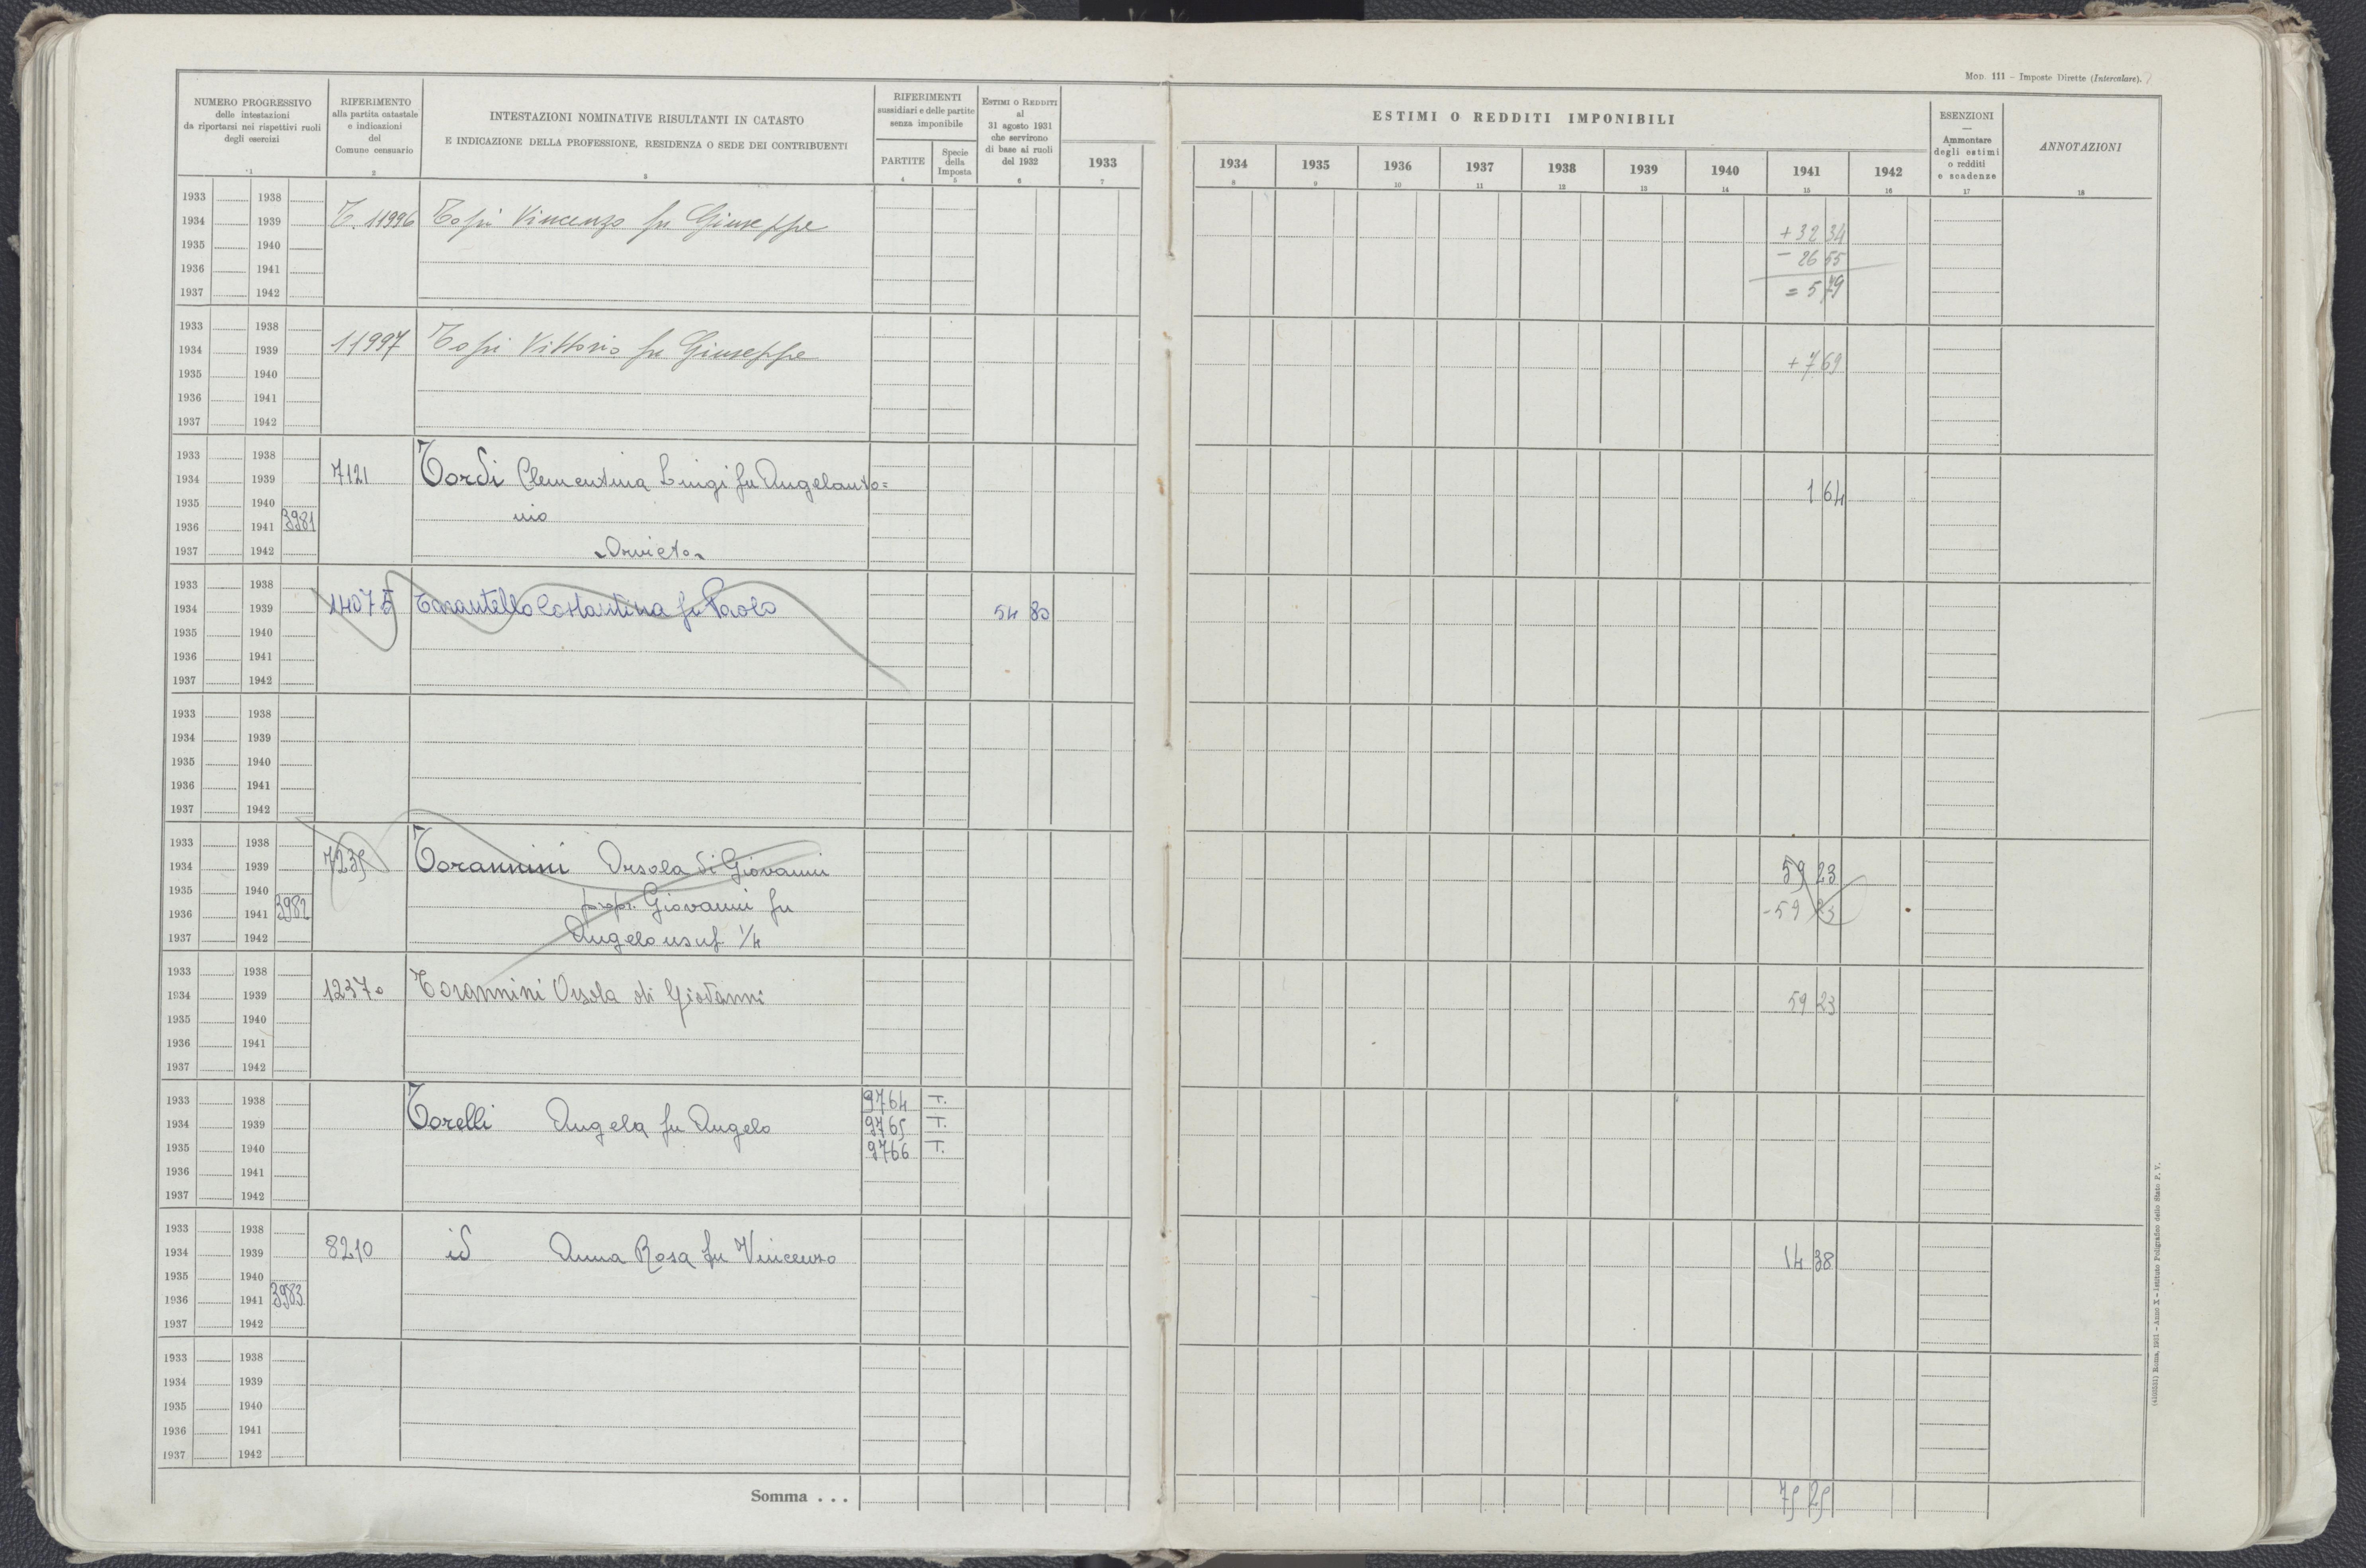 Mod. 111 – Imposte Dirette (Intercalare).
NUMERO PROGRESSIVO
delle intestazioni
da riportarsi nei rispettivi ruoli
degli esercizi
1
RIFERIMENTO
alla partita catastale
e indicazioni
del
Comune censuario
2
INTESTAZIONI NOMINATIVE RISULTANTI IN CATASTO
E INDICAZIONE DELLA PROFESSIONE, RESIDENZA O SEDE DEI CONTRIBUENTI
3
RIFERIMENTI
sussidiari e delle partite
senza imponibile
PARTITE
4
Specie
della
Imposta
5
Estimi o Redditi
al
31 agosto 1931
che servirono
di base ai ruoli
del 1932
6
ESTIMI O REDDITI IMPONIBILI
1933 1934 1935 1936 1937 1938 1939 1940 1941 1942
7 8 9 10 11 12 13 14 15 16
ESENZIONI
—
Ammontare
degli estimi
o redditi
e scadenze
17
ANNOTAZIONI
18
1933 1938
1934 1939 T. 11996 Topi Vincenzo fu Giuseppe + 32 34
1935 1940
1936 1941 - 26 55
1937 1942 = 5 79
1933 1938
1934 1939 11997 Topi Vittorio fu Giuseppe + 7 69
1935 1940
1936 1941
1937 1942
1933 1938
1934 1939 7121 Tordi Clementina Luigi fu Angelanto= 1 64
1935 1940
1936 1941 3981 nio
1937 1942 Orvieto
1933 1938
1934 1939 14075 Torantello Costantina fu Paolo 54 80
1935 1940
1936 1941
1937 1942
1933 1938
1934 1939
1935 1940
1936 1941
1937 1942
1933 1938
1934 1939 7235 Torannini Orsola di Giovanni 59 23
1935 1940
1936 1941 3982 propr. Giovanni fu - 59 23
1937 1942 Angelo usuf. 1/4
1933 1938
1934 1939 12370 Torannini Orsola di Giovanni 59 23
1935 1940
1936 1941
1937 1942
1933 1938 9764 T.
1934 1939 Torelli Angela fu Angelo 9765 T.
1935 1940 9766 T.
1936 1941
1937 1942
1933 1938
1934 1939 8210 id Anna Rosa fu Vincenzo 14 38
1935 1940
1936 1941 3983
1937 1942
1933 1938
1934 1939
1935 1940
1936 1941
1937 1942
Somma . . . 75 25
(4103531) Roma, 1931 – Anno X – Istituto Poligrafico dello Stato P. V.